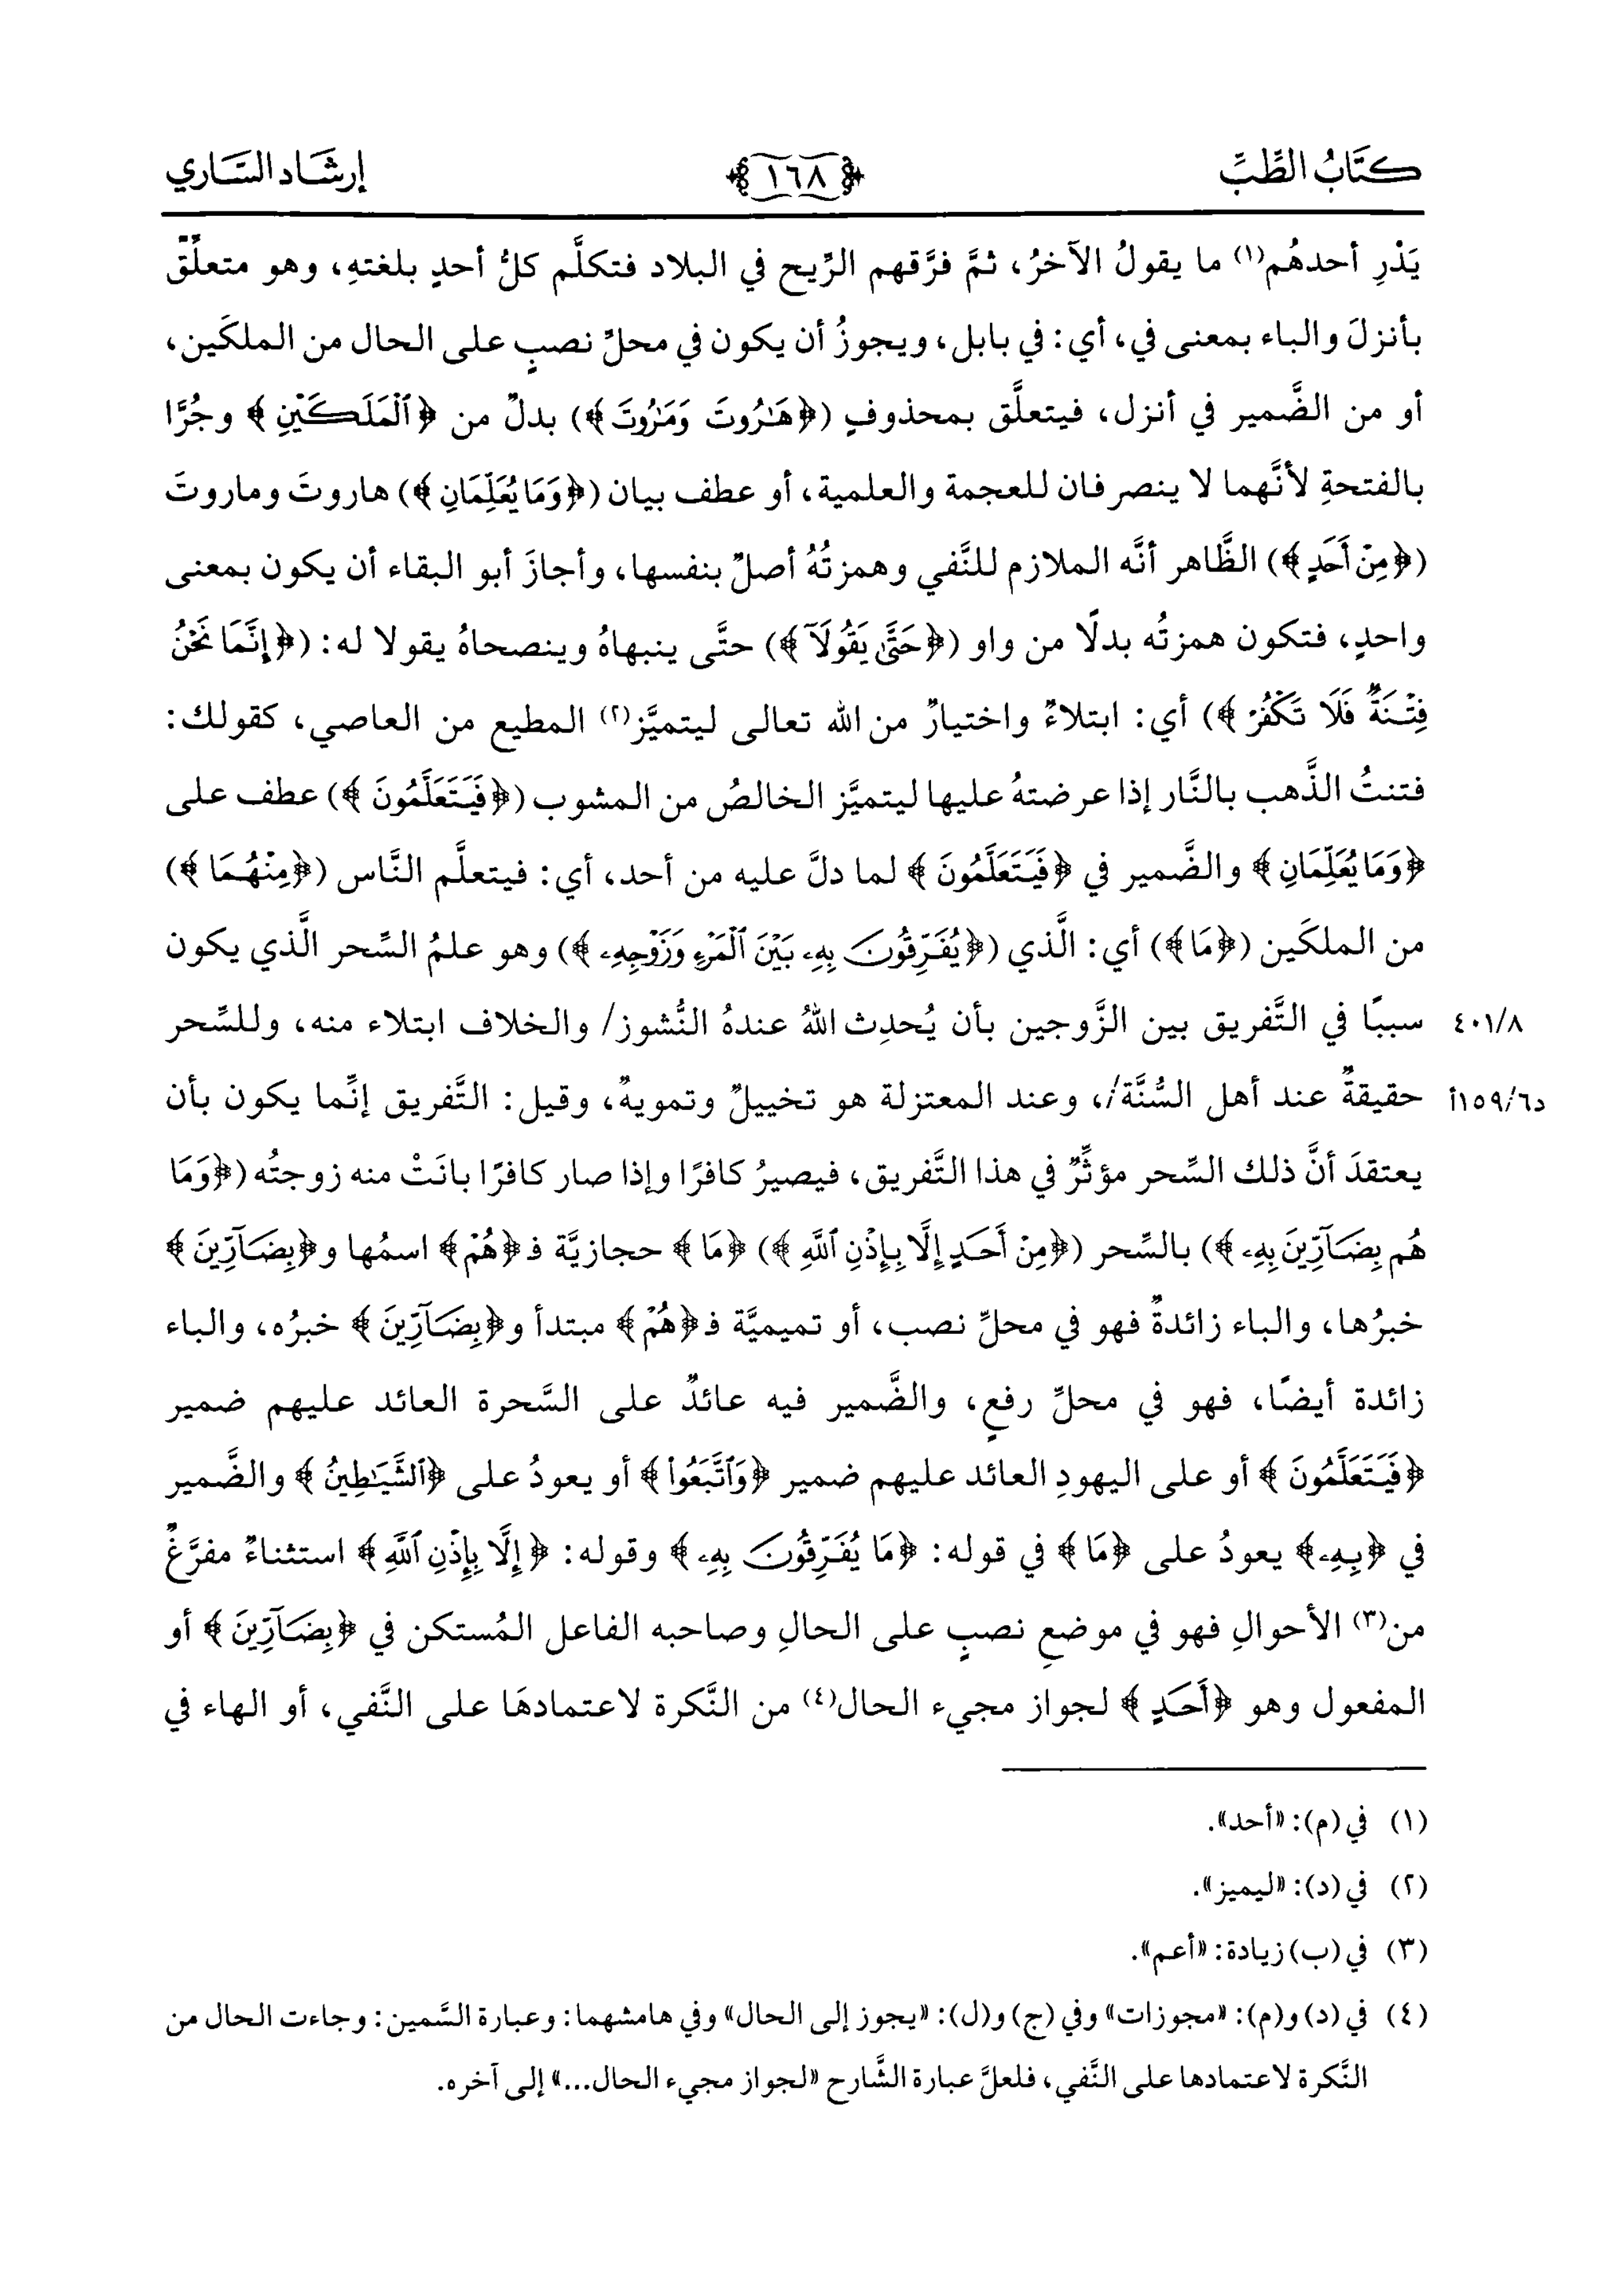 كتَابُ الطِّبِّ
١٦٨
إرشَاد السَّاري
يَدْرِ أحدهُم(١) ما يقولُ الآخرُ، ثمَّ فرَّقهم الرِّيح في البلاد فتكلَّم كلُّ أحدٍ بلغتهِ، وهو متعلِّقٌ
بأنزلَ والباء بمعنى في، أي: في بابل، ويجوزُ أن يكون في محلِّ نصبٍ على الحال من الملكَين،
أو من الضَّمير في أنزل، فيتعلَّق بمحذوفٍ (﴿هَٰرُوتَ وَمَٰرُوتَ﴾) بدلٌ من ﴿ٱلْمَلَكَيْنِ﴾ وجُرَّا
بالفتحةِ لأنَّهما لا ينصرفان للعجمة والعلمية، أو عطف بيان (﴿وَمَا يُعَلِّمَانِ﴾) هاروتَ وماروتَ
(﴿مِنْ أَحَدٍ﴾) الظَّاهر أنَّه الملازم للنَّفي وهمزتُهُ أصلٌ بنفسها، وأجازَ أبو البقاء أن يكون بمعنى
واحدٍ، فتكون همزتُه بدلًا من واو (﴿حَتَّىٰ يَقُولَآ﴾) حتَّى ينبهاهُ وينصحاهُ يقولا له: (﴿إِنَّمَا نَحْنُ
فِتْنَةٌ فَلَا تَكْفُرْ﴾) أي: ابتلاءٌ واختيارٌ من الله تعالى ليتميَّز(٢) المطيع من العاصي، كقولك:
فتنتُ الذَّهب بالنَّار إذا عرضتهُ عليها ليتميَّز الخالصُ من المشوب (﴿فَيَتَعَلَّمُونَ﴾) عطف على
﴿وَمَا يُعَلِّمَانِ﴾ والضَّمير في ﴿فَيَتَعَلَّمُونَ﴾ لما دلَّ عليه من أحد، أي: فيتعلَّم النَّاس (﴿مِنْهُمَا﴾)
من الملكَين (﴿مَا﴾) أي: الَّذي (﴿يُفَرِّقُونَ بِهِۦ بَيْنَ ٱلْمَرْءِ وَزَوْجِهِۦ﴾) وهو علمُ السِّحر الَّذي يكون
سببًا في التَّفريق بين الزَّوجين بأن يُحدِث اللهُ عندهُ النُّشوز/ والخلاف ابتلاء منه، وللسِّحر ٤٠١/٨
حقيقةٌ عند أهل السُّنَّة/، وعند المعتزلة هو تخييلٌ وتمويهٌ، وقيل: التَّفريق إنَّما يكون بأن د٦/١٥٩أ
يعتقدَ أنَّ ذلك السِّحر مؤثِّرٌ في هذا التَّفريق، فيصيرُ كافرًا وإذا صار كافرًا بانَتْ منه زوجتُه (﴿وَمَا
هُم بِضَآرِّينَ بِهِۦ﴾) بالسِّحر (﴿مِنْ أَحَدٍ إِلَّا بِإِذْنِ ٱللَّهِ﴾) ﴿مَا﴾ حجازيَّة فـ﴿هُمْ﴾ اسمُها و﴿بِضَآرِّينَ﴾
خبرُها، والباء زائدةٌ فهو في محلِّ نصب، أو تميميَّة فـ﴿هُمْ﴾ مبتدأ و﴿بِضَآرِّينَ﴾ خبرُه، والباء
زائدة أيضًا، فهو في محلِّ رفعٍ، والضَّمير فيه عائدٌ على السَّحرة العائد عليهم ضمير
﴿فَيَتَعَلَّمُونَ﴾ أو على اليهودِ العائد عليهم ضمير ﴿وَٱتَّبَعُوا۟﴾ أو يعودُ على ﴿ٱلشَّيَٰطِينُ﴾ والضَّمير
في ﴿بِهِۦ﴾ يعودُ على ﴿مَا﴾ في قوله: ﴿مَا يُفَرِّقُونَ بِهِۦ﴾ وقوله: ﴿إِلَّا بِإِذْنِ ٱللَّهِ﴾ استثناءٌ مفرَّغٌ
من(٣) الأحوالِ فهو في موضعِ نصبٍ على الحالِ وصاحبه الفاعل المُستكن في ﴿بِضَآرِّينَ﴾ أو
المفعول وهو ﴿أَحَدٍ﴾ لجواز مجيء الحال(٤) من النَّكرة لاعتمادهَا على النَّفي، أو الهاء في
(١) في (م): «أحد».
(٢) في (د): «ليميز».
(٣) في (ب) زيادة: «أعم».
(٤) في (د) و(م): «مجوزات» وفي (ج) و(ل): «يجوز إلى الحال» وفي هامشهما: وعبارة السَّمين: وجاءت الحال من
النَّكرة لاعتمادها على النَّفي، فلعلَّ عبارة الشَّارح «لجواز مجيء الحال...» إلى آخره.